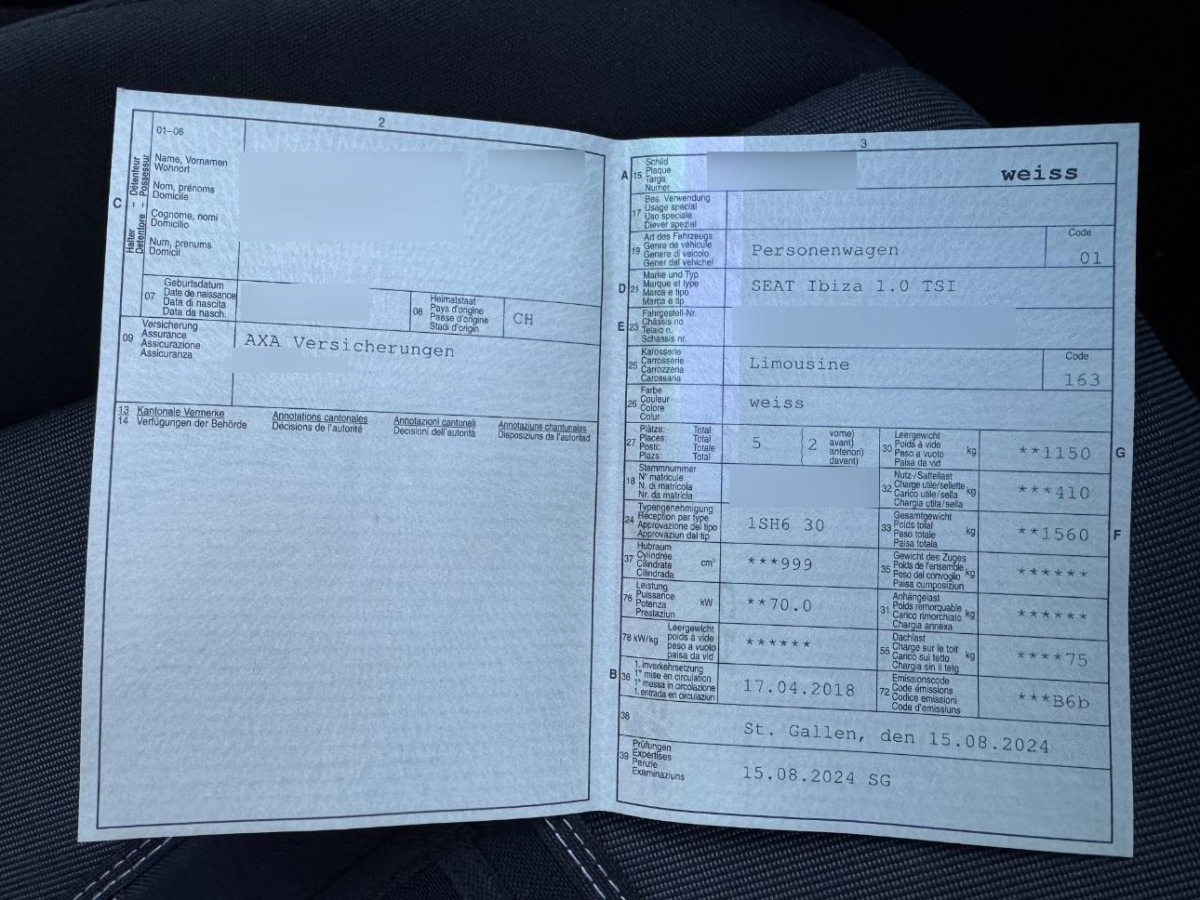 2
01-06
C
Halter - Détenteur
Detentore - Possessur
Name, Vornamen
Wohnort
Nom, prénoms
Domicile
Cognome, nomi
Domicilio
Num, prenums
Domicil
07
Geburtsdatum
Date de naissance
Data di nascita
Data da nasch.
08
Heimatstaat
Pays d'origine
Paese d'origine
Stadi d'origin
CH
09
Versicherung
Assurance
Assicurazione
Assicuranza
AXA Versicherungen
13 Kantonale Vermerke
14 Verfügungen der Behörde
Annotations cantonales
Décisions de l'autorité
Annotazioni cantonali
Decisioni dell'autorità
Annotaziuns chantunalas
Disposiziuns da l'autoritad
3
A 15
Schild
Plaque
Targa
Numer
weiss
17
Bes. Verwendung
Usage spécial
Uso speciale
Diever spezial
19
Art des Fahrzeugs
Genre de véhicule
Genere di veicolo
Gener dal vehichel
Personenwagen
Code
01
D 21
Marke und Typ
Marque et type
Marca e tipo
Marca e tip
SEAT Ibiza 1.0 TSI
E 23
Fahrgestell-Nr.
Châssis no
Telaio n.
Schassis nr.
25
Karosserie
Carrosserie
Carrozzeria
Carossaria
Limousine
Code
163
26
Farbe
Couleur
Colore
Colur
weiss
27
Plätze: Total
Places: Total
Posti: Totale
Plazs: Total
5
( 2
vorne)
avant)
anteriori)
davant)
30
Leergewicht
Poids à vide
Peso a vuoto
Paisa da vid
kg
**1150
G
18
Stammnummer
N° matricule
N. di matricola
Nr. da matricla
32
Nutz-/Sattellast
Charge utile/sellette
Carico utile/sella
Chargia utila/sella
kg
***410
24
Typengenehmigung
Réception par type
Approvazione del tipo
Approvaziun dal tip
1SH6 30
33
Gesamtgewicht
Poids total
Peso totale
Paisa totala
kg
**1560
F
37
Hubraum
Cylindrée
Cilindrata
Cilindrada
cm³
***999
35
Gewicht des Zuges
Poids de l'ensemble
Peso del convoglio
Paisa cumposiziun
kg
******
76
Leistung
Puissance
Potenza
Prestaziun
kW
**70.0
31
Anhängelast
Poids remorquable
Carico rimorchiato
Chargia annexa
kg
******
78 kW/kg
Leergewicht
poids à vide
peso a vuoto
paisa da vid
******
55
Dachlast
Charge sur le toit
Carico sul tetto
Chargia sin il tetg
kg
****75
B 36
1. Inverkehrsetzung
1re mise en circulation
1a messa in circolazione
1. entrada en circulaziun
17.04.2018
72
Emissionscode
Code émissions
Codice emissioni
Code d'emissiuns
***B6b
38
St. Gallen, den 15.08.2024
39
Prüfungen
Expertises
Perizie
Examinaziuns
15.08.2024 SG